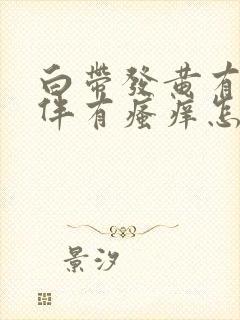 白帶發黃有
伴有瘙癢怎
景汐